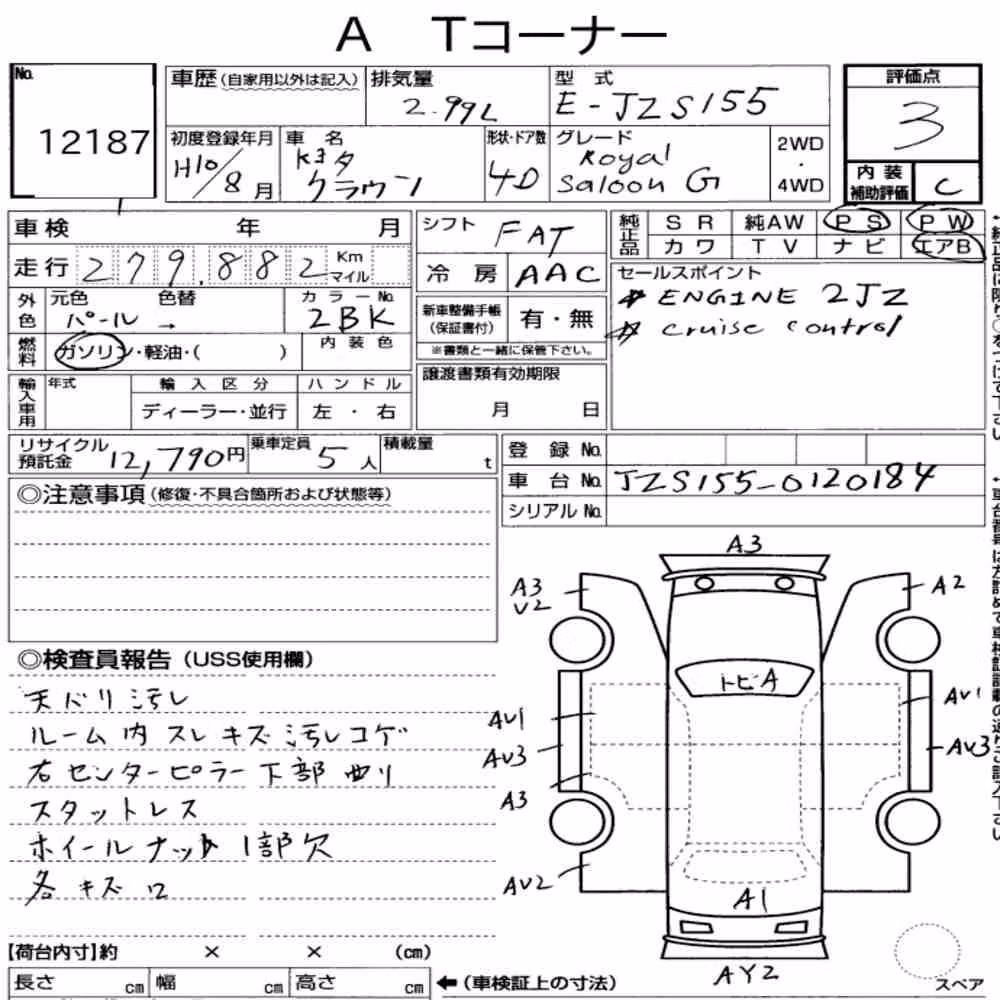 A Tコーナー
No. 12187
車歴 (自家用以外は記入)
排気量 2.99L
型 式 E-JZS155
評価点 3
初度登録年月 H10/8月
車 名 トヨタ クラウン
形状・ドア数 4D
グレード Royal Saloon G
2WD ・ 4WD
内装補助評価 C
車検 年 月
走行 279,882 Km マイル
シフト FAT
冷 房 AAC
純正品 SR 純AW PS PW
カワ TV ナビ エアB
セールスポイント
ENGINE 2JZ
cruise control
外色 元色 パール → 色替 カラーNo. 2BK
燃料 ガソリン・軽油・( ) 内装色
新車整備手帳 (保証書付) 有・無
※書類と一緒に保管下さい。
輸入車用 年式 輸入区分 ディーラー・並行 ハンドル 左・右
譲渡書類有効期限 月 日
リサイクル預託金 12,790円
乗車定員 5人
積載量 t
登 録 No.
車 台 No. JZS155-0120184
シリアル No.
◎注意事項 (修復・不具合箇所および状態等)
◎検査員報告 (USS使用欄)
天バリ汚れ
ルーム内スレキズ汚レコゲ
右センターピラー下部曲リ
スタットレス
ホイールナット1部欠
各キズ口
A3
A3
U2
A2
トビA
AU1
AU1
AU3
AU3
A3
AU2
A1
AY2
スペア
【荷台内寸】約 × × (cm)
長さ cm 幅 cm 高さ cm
←(車検証上の寸法)